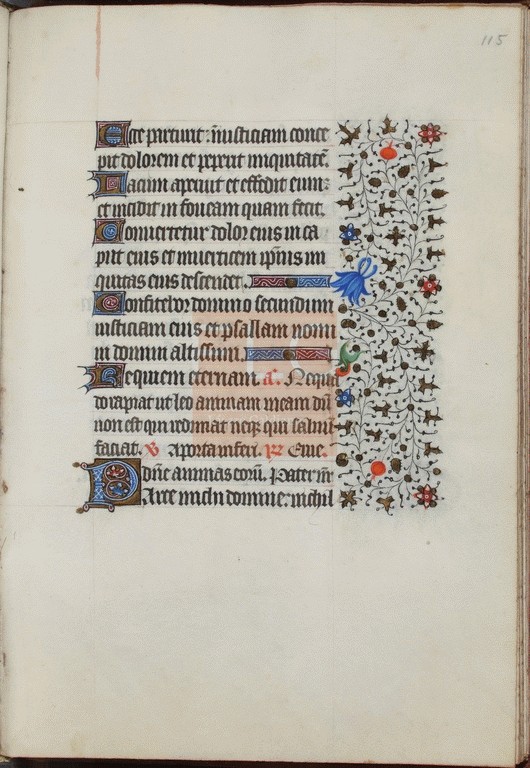 115
Ecce parturiit iniusticiam conce
pit dolorem et peperit iniquitatē.
Lacum aperuit et effodit eum:
et incidit in foueam quam fecit.
Conuertetur dolor eius in ca
put eius et in uerticem ip̄ius ini
quitas eius descendet.
Confitebor domino secundum
iusticiam eius et psallam nomi
ni domini altissimi.
Requiem eternam. a͛. Nequā
do rapiat ut leo animam meam dū
non est qui redimat neqꝫ qui saluū
faciat. ℣ A porta inferi. ℟ Erue.
dn̄e animas eorū. Pater nr̄
Parce michi domine: nichil